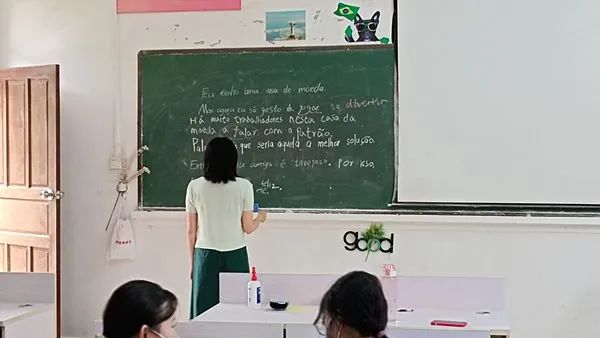 Eu tenho uma casa de moeda.
Mas agora eu só gosto de se divertir
Há muito trabalhadores nesta casa da
moeda a falar com a patrão.
que seria aquela a melhor solução.
amiga é . Por isso,
feliz.
good